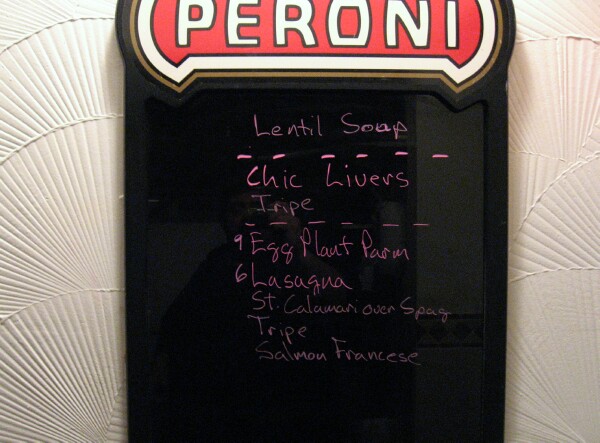 PERONI
Lentil Soap
Chic Livers
Tripe
9 Egg Plant Parm
6 Lasagna
St. Calamari over Spag
Tripe
Salmon Francese